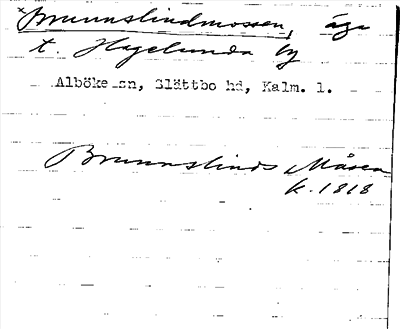 *Brunnslindmossen, äga
t. Hagelunda by
Alböke sn, Slättbo hd, Kalm. l.
Brunnslinds Måsen
k. 1818